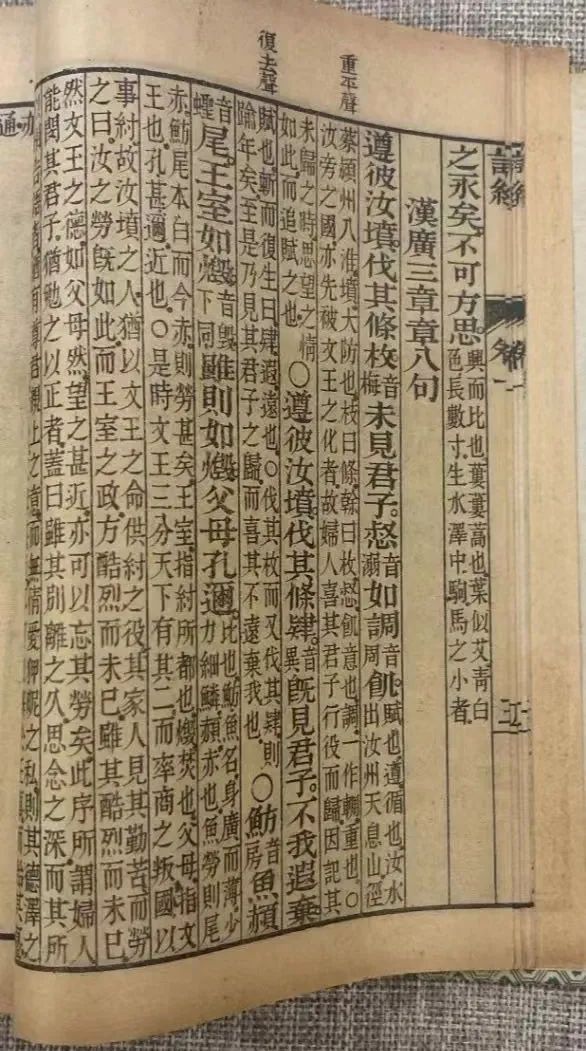 詩經
卷一
重平聲
復去聲
之永矣。不可方思。興而比也蔞蔞蒿也葉似艾青白色長數寸生水澤中駒馬之小者
漢廣三章章八句
遵彼汝墳。伐其條枚。音梅未見君子。惄音溺如調音周飢。賦也遵循也汝水出汝州天息山逕
蔡潁州入淮墳大防也枝曰條榦曰枚惄飢意也調一作輖重也○
汝旁之國亦先被文王之化者故婦人喜其君子行役而歸因記其
未歸之時思望之情如此而追賦之也○遵彼汝墳。伐其條肄。音異既見君子。不我遐棄。
賦也斬而復生曰肄遐遠也○伐其枚而又伐其肄則踰年矣至是乃見其君子之歸而喜其不遠棄我也○魴音房魚赬
音蟶尾。王室如燬。音毀下同雖則如燬。父母孔邇。比也魴魚名身廣而薄少力細鱗赬赤也魚勞則尾
赤魴尾本白而今赤則勞甚矣王室指紂所都也燬焚也父母指文
王也孔甚邇近也○是時文王三分天下有其二而率商之叛國以
事紂故汝墳之人猶以文王之命供紂之役其家人見其勤苦而勞
之曰汝之勞既如此而王室之政方酷烈而未已雖其酷烈而未已
然文王之德如父母然望之甚近亦可以忘其勞矣此序所謂婦人
能閔其君子猶勉之以正者蓋曰雖其別離之久思念之深而其所
告語者猶有尊君親上之意而無情愛狎昵之私則其德澤之